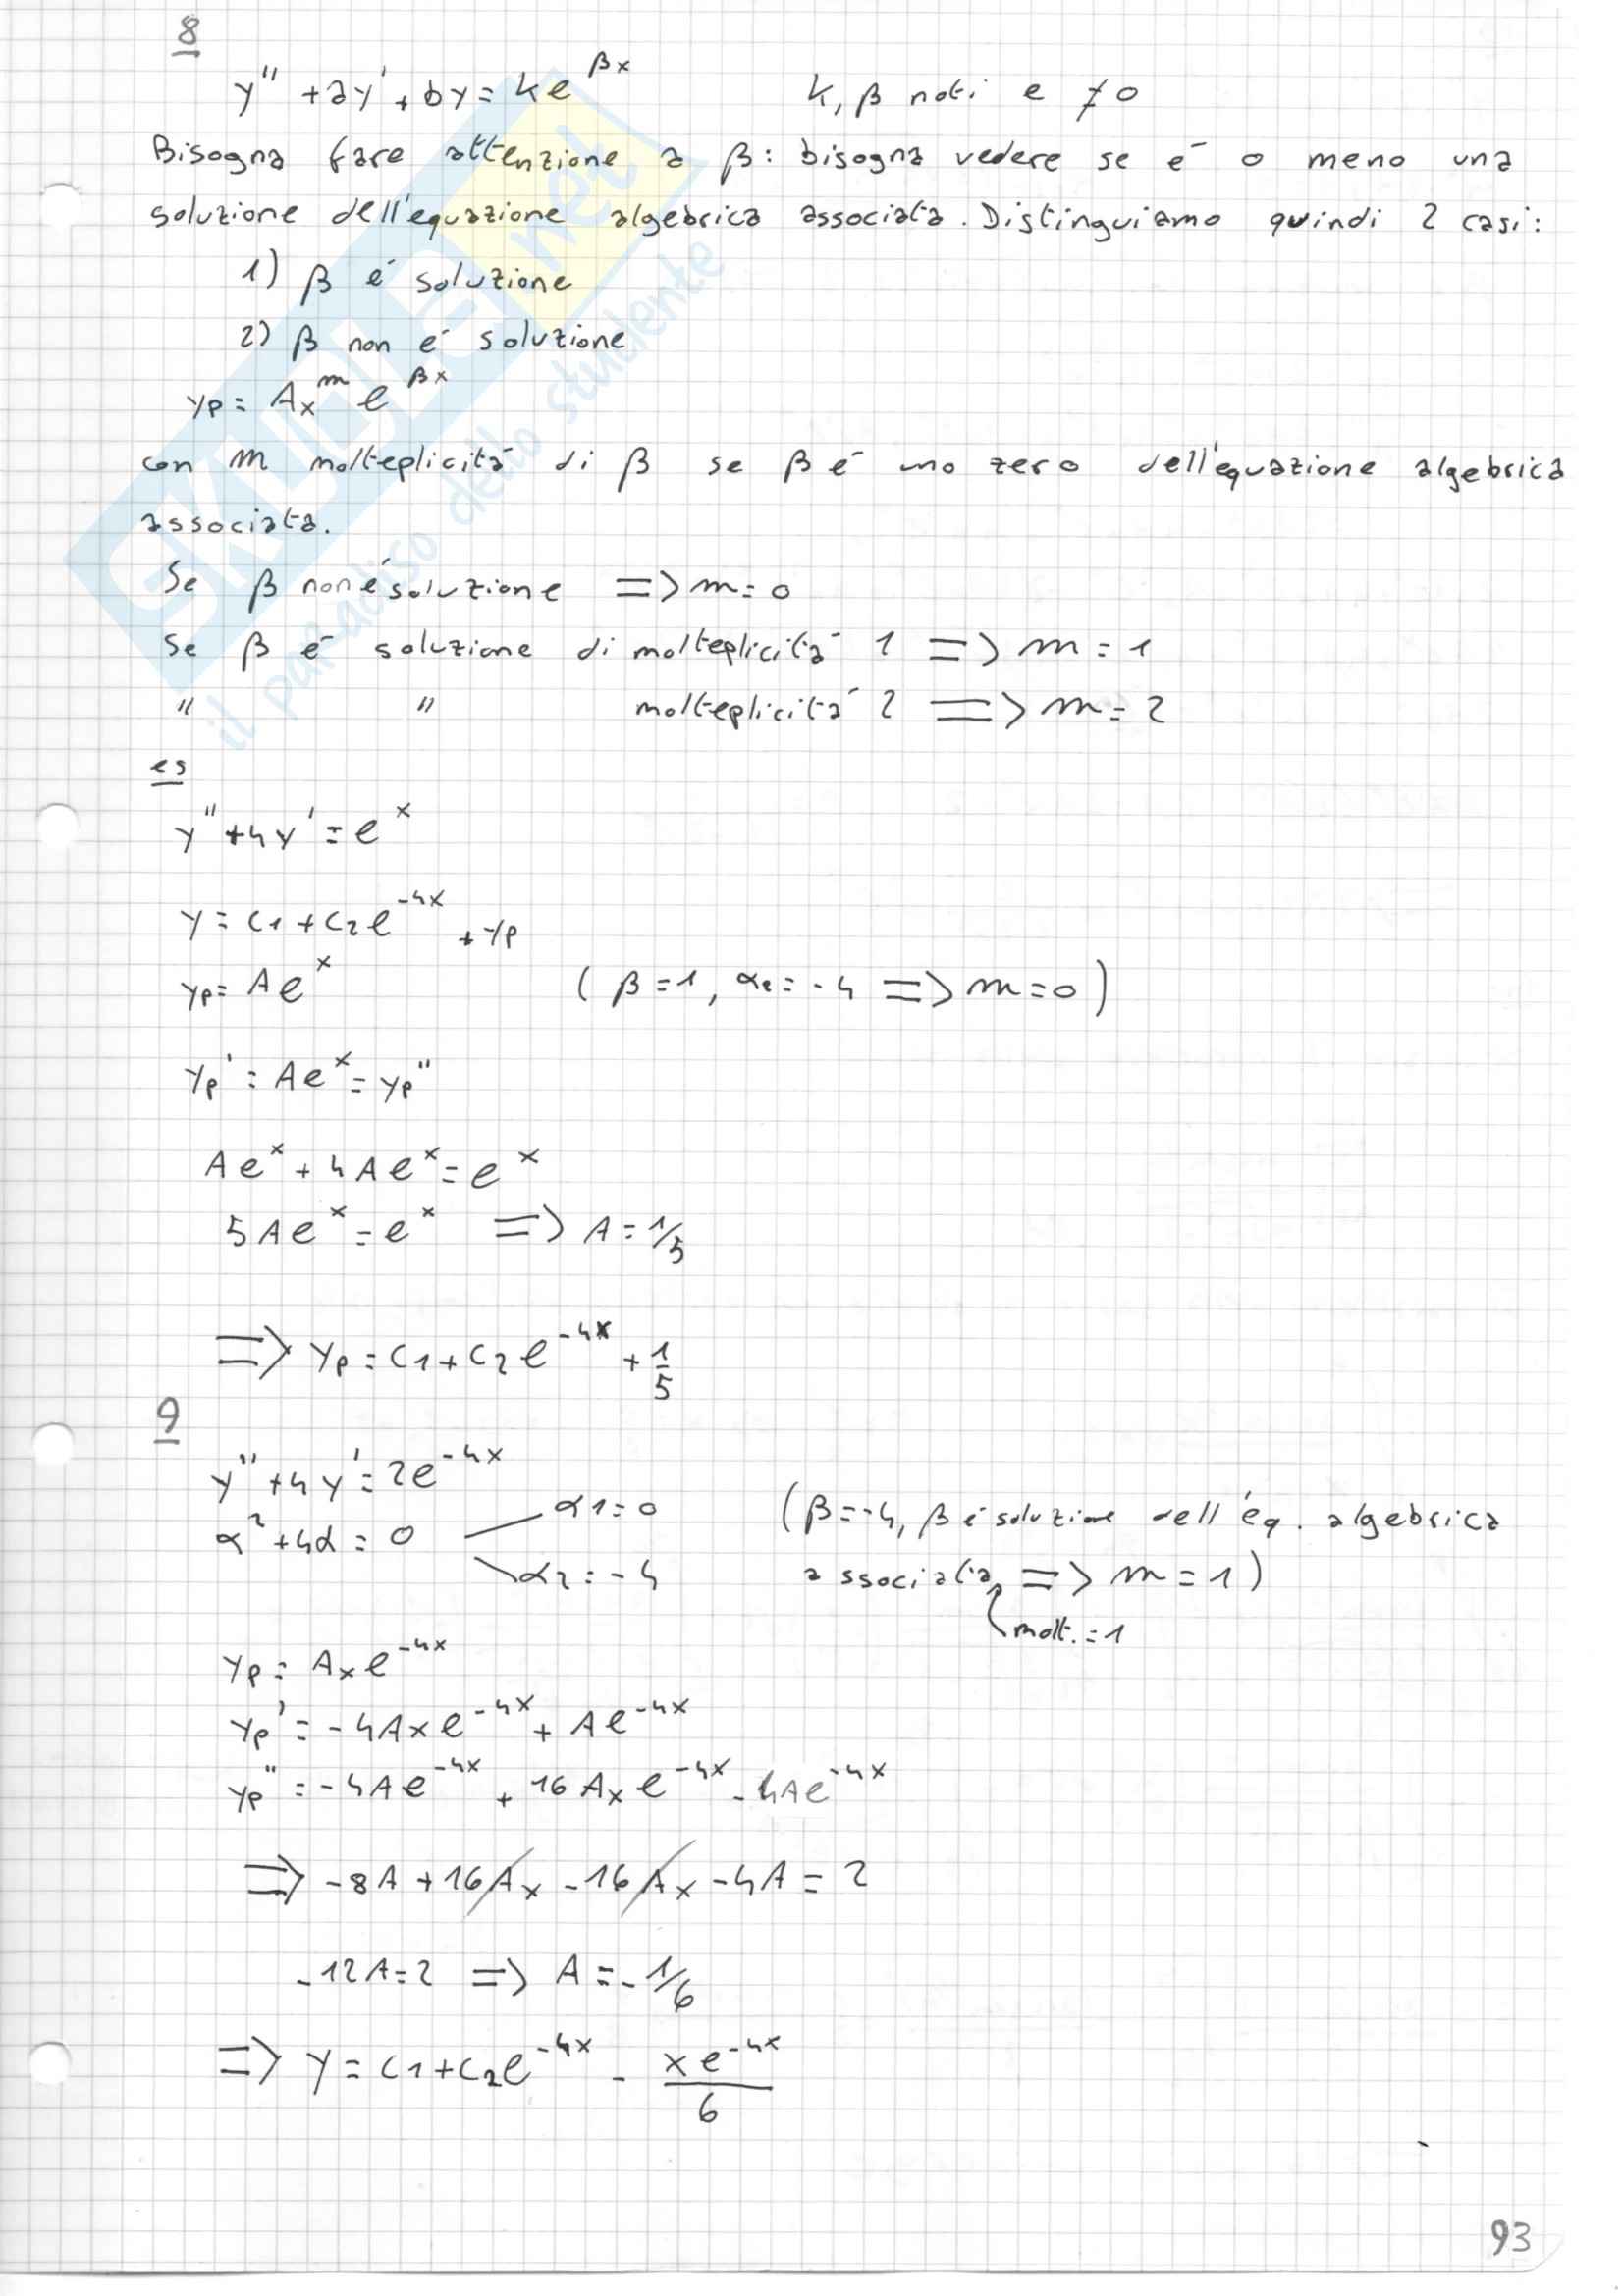 8
y'' + ay' + by = ke^{βx} k, β noti e ≠ 0
Bisogna fare attenzione a β: bisogna vedere se è o meno una
soluzione dell'equazione algebrica associata. Distinguiamo quindi 2 casi:
1) β è soluzione
2) β non è soluzione
yp = Ax^m e^{βx}
con m molteplicità di β se β è uno zero dell'equazione algebrica
associata.
Se β non è soluzione => m = 0
Se β è soluzione di molteplicità 1 => m = 1
" " molteplicità 2 => m = 2
es
y'' + 4y' = e^x
y = c1 + c2e^{-4x} + yp
yp = Ae^x (β = 1, α2 = -4 => m = 0)
yp' = Ae^x = yp''
Ae^x + 4Ae^x = e^x
5Ae^x = e^x => A = 1/5
=> yp = c1 + c2e^{-4x} + 1/5
9
y'' + 4y' = 2e^{-4x}
α² + 4α = 0 α1 = 0 α2 = -4 (β = -4, β è soluzione dell'eq. algebrica
associata => m = 1)
molt. = 1
yp = Axe^{-4x}
yp' = -4Axe^{-4x} + Ae^{-4x}
yp'' = -4Ae^{-4x} + 16Axe^{-4x} - 4Ae^{-4x}
=> -8A + 16Ax - 16Ax - 4A = 2
-12A = 2 => A = -1/6
=> y = c1 + c2e^{-4x} - xe^{-4x}/6
93
SKUOLA.net
il paradiso dello studente